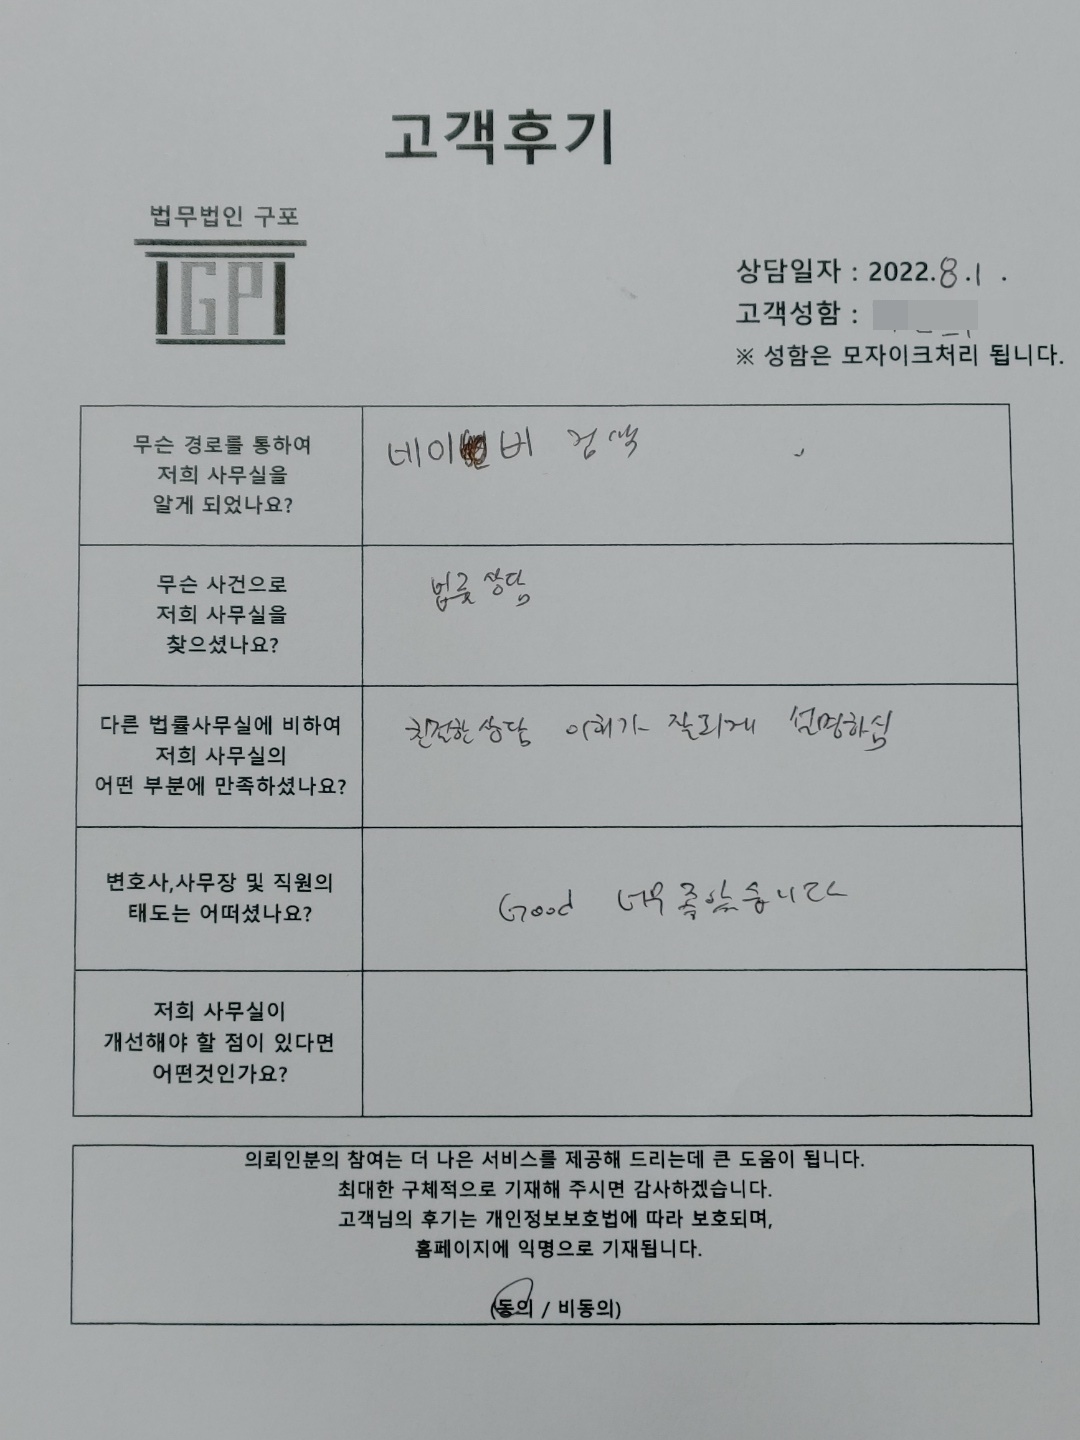 고객후기
법무법인 구포
GP
상담일자 : 2022.8.1.
고객성함 :
※ 성함은 모자이크처리 됩니다.
무슨 경로를 통하여
저희 사무실을
알게 되었나요?
네이버 검색
무슨 사건으로
저희 사무실을
찾으셨나요?
법률상담
다른 법률사무실에 비하여
저희 사무실의
어떤 부분에 만족하셨나요?
친절한상담 이해가 잘되게 설명하심
변호사,사무장 및 직원의
태도는 어떠셨나요?
Good 너무 좋았습니다
저희 사무실이
개선해야 할 점이 있다면
어떤것인가요?
의뢰인분의 참여는 더 나은 서비스를 제공해 드리는데 큰 도움이 됩니다.
최대한 구체적으로 기재해 주시면 감사하겠습니다.
고객님의 후기는 개인정보보호법에 따라 보호되며,
홈페이지에 익명으로 기재됩니다.
(동의 / 비동의)